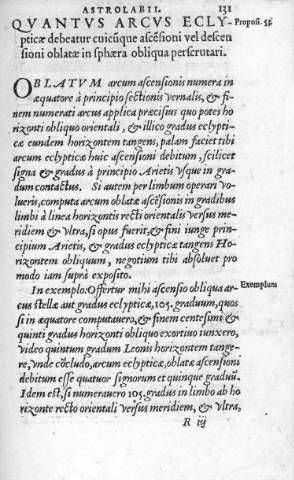 ASTROLABII. 131
QVANTVS ARCVS ECLY- Proposi. 53.
pticæ debeatur cuicũque ascẽsioni vel descen
sioni oblatæ in sphæra obliqua perscrutari.
OBLATVM arcum ascensionis numera in
æquatore à principio sectionis vernalis, & fi-
nem numerati arcus applica præcisius quo potes ho
rizonti obliquo orientali, & illico gradus eclypti-
cæ eundem horizontem tangens, palam faciet tibi
arcum eclypticæ huic ascensioni debitum, scilicet
signa & gradus à principio Arietis vsque in gra-
dum contactus. Si autem per limbum operari vo-
lueris, computa arcum oblatæ ascẽsionis in gradibus
limbi à linea horizontis recti orientali versus me-
ridiem & vltra, si opus fuerit, & fini iunge prin-
cipium Arietis, & gradus eclypticæ tangens Ho-
rizontem obliquum, negotium tibi absoluet pro
modo iam suprà exposito.
In exemplo. Offertur mihi ascensio obliqua ar- Exemplum
cus stellæ aut gradus eclypticæ, 105. graduum, quos
si in æquatore computauero, & finem centesimi &
quinti gradus horizonti obliquo exortiuo iunxero,
video quintum gradum Leonis horizontem tange-
re, vnde cõcludo, arcum eclypticæ, oblatæ ascensioni
debitum esse quatuor signorum et quinque graduũ.
Idem est, si numerauero 105. gradus in limbo ab ho
rizonte recto orientali versus meridiem, & vltra,
R iij